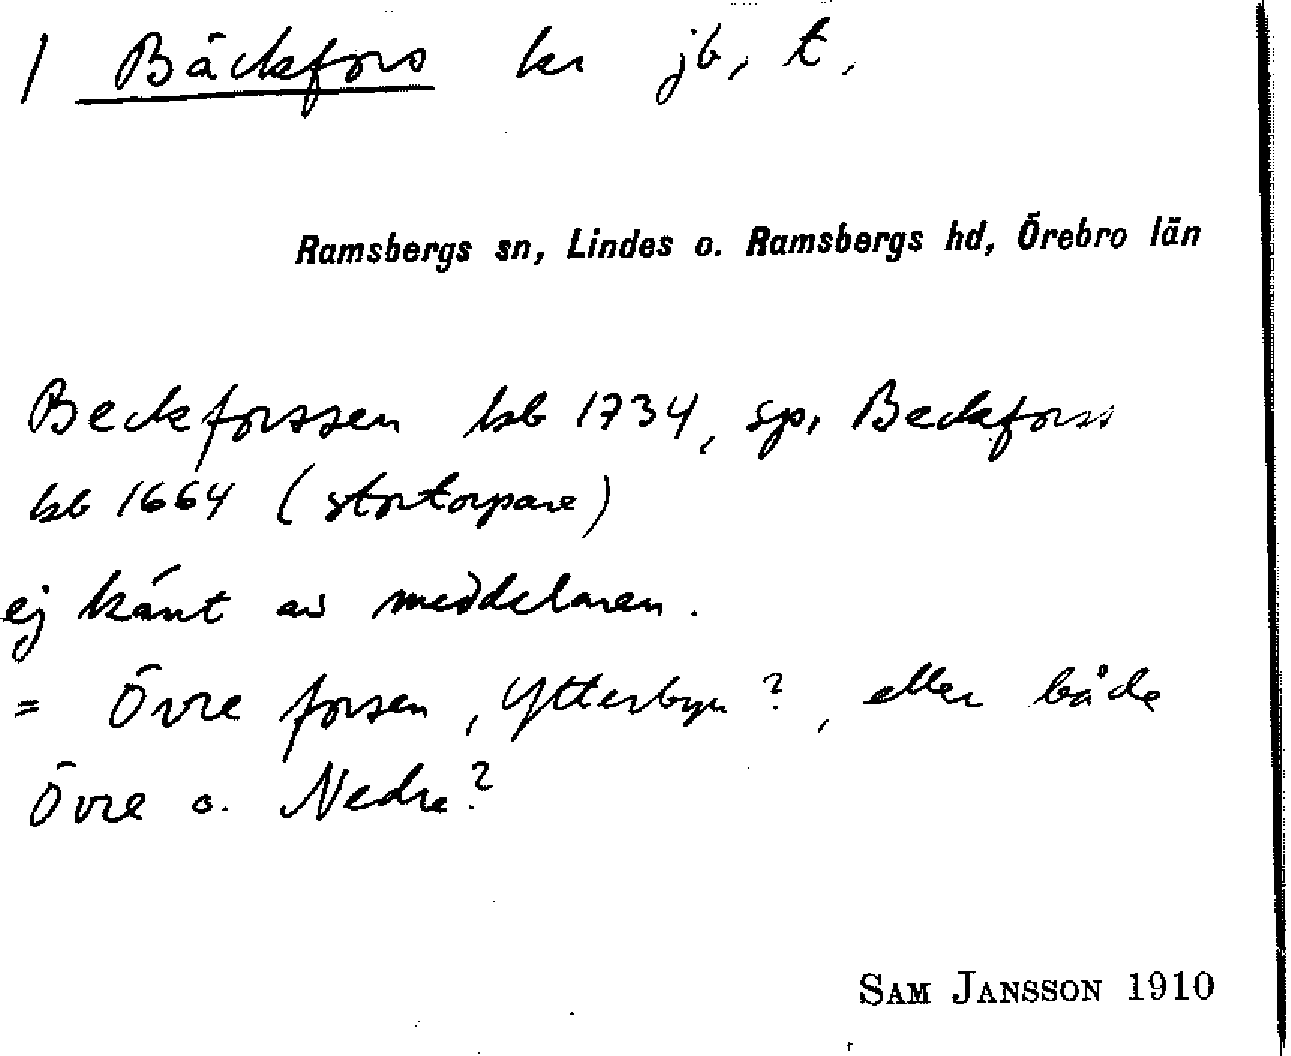 / Bäckfors kr jb, t,
Ramsbergs sn, Lindes o. Ramsbergs hd, Örebro län
Beckforssen kb 1734, sp, Beckforss
kb 1664 (stortorpare)
ej känt av meddelaren.
= Övre forsen, Ytterbyn?, eller både
Övre o. Nedre?
SAM JANSSON 1910